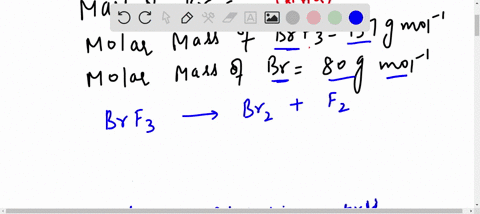 Molar Mass of BrF3 = 137 g mol⁻¹
Molar Mass of Br = 80 g mol⁻¹
BrF3 → Br2 + F2